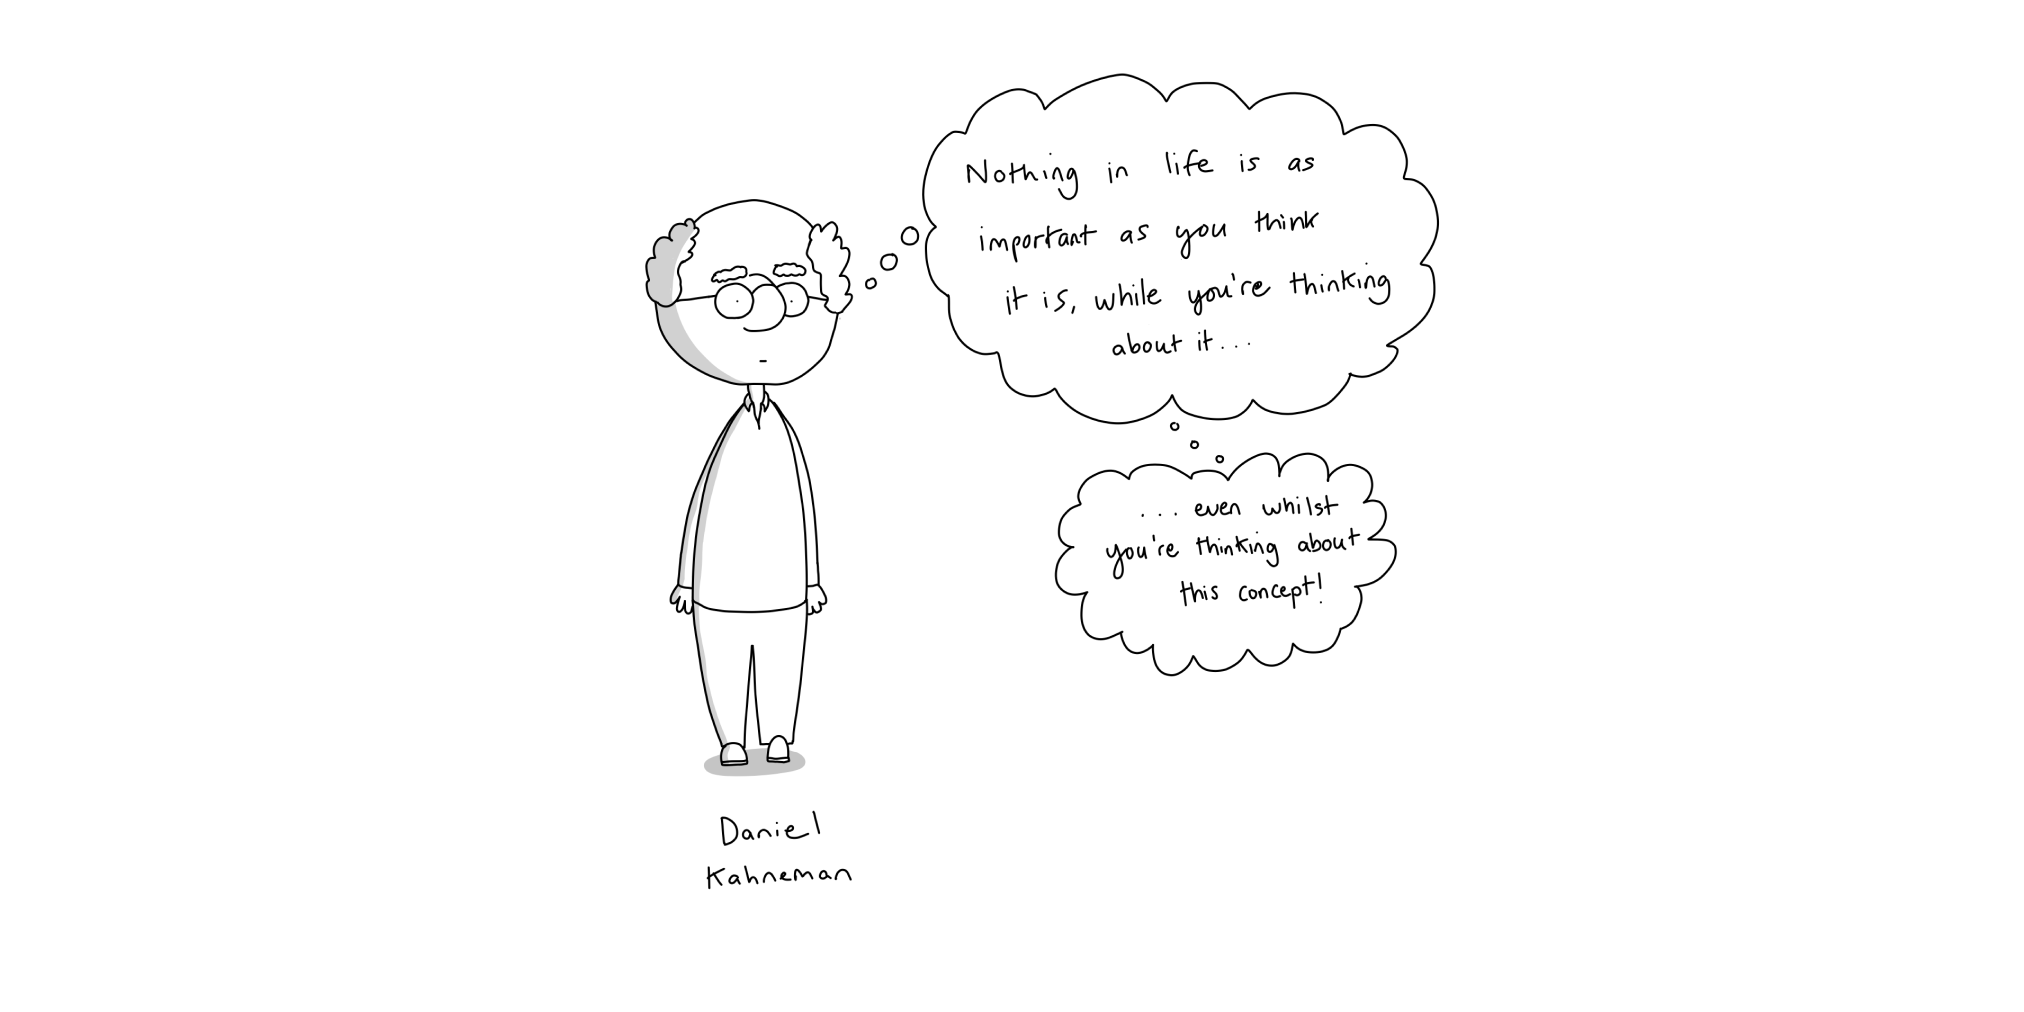 Nothing in life is as
important as you think
it is, while you're thinking
about it...
...even whilst
you're thinking about
this concept!
Daniel
Kahneman